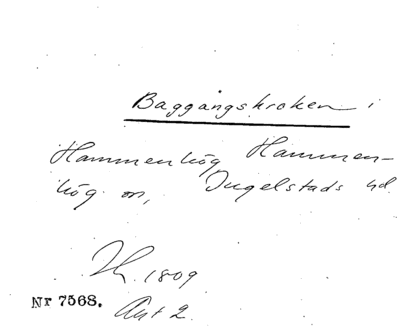 Baggångskroken i
Hammenhög Hammen-
hög sn, Ingelstads hd
Lh. 1809
Nr 7568.
Akt 2.